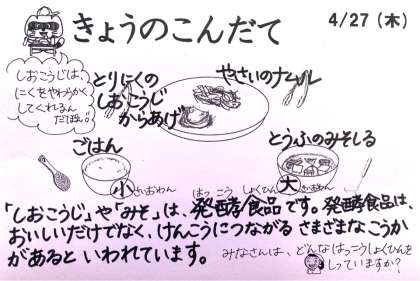 きょうのこんだて
4/27 (木)
しおこうじは、
にくをやわらかく
してくれるん
だポン。
とりにくの
しおこうじ
からあげ
やさいのナムル
ごはん
小
ちいさいおわん
とうふのみそしる
大
おおきいおわん
はっこうしょくひん
「しおこうじ」や「みそ」は、発酵食品です。発酵食品は、
おいしいだけでなく、けんこうにつながる さまざまなこうか
があると いわれています。
みなさんは、どんなはっこうしょくひんを
しっていますか?